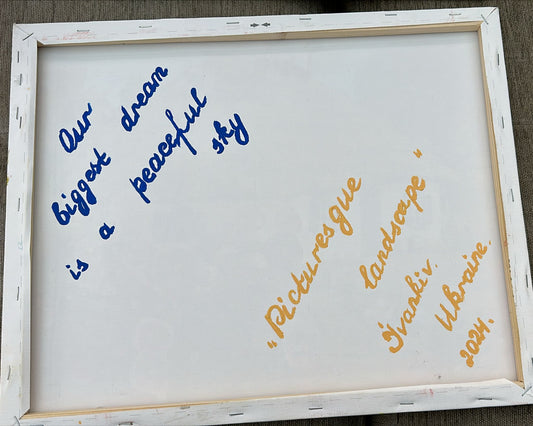 Our
biggest dream
is a peaceful
sky
„Picturesgue
landscape"
Ivankiv.
Ukraine.
2024.